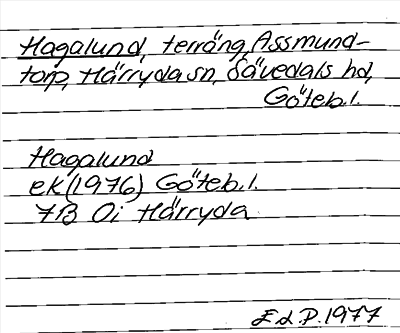 Hagalund, terräng, Assmund-
torp, Härryda sn, Sävedals hd,
Göteb. l.
Hagalund
ek (1976) Göteb. l.
7B 0i Härryda
E d P. 1977